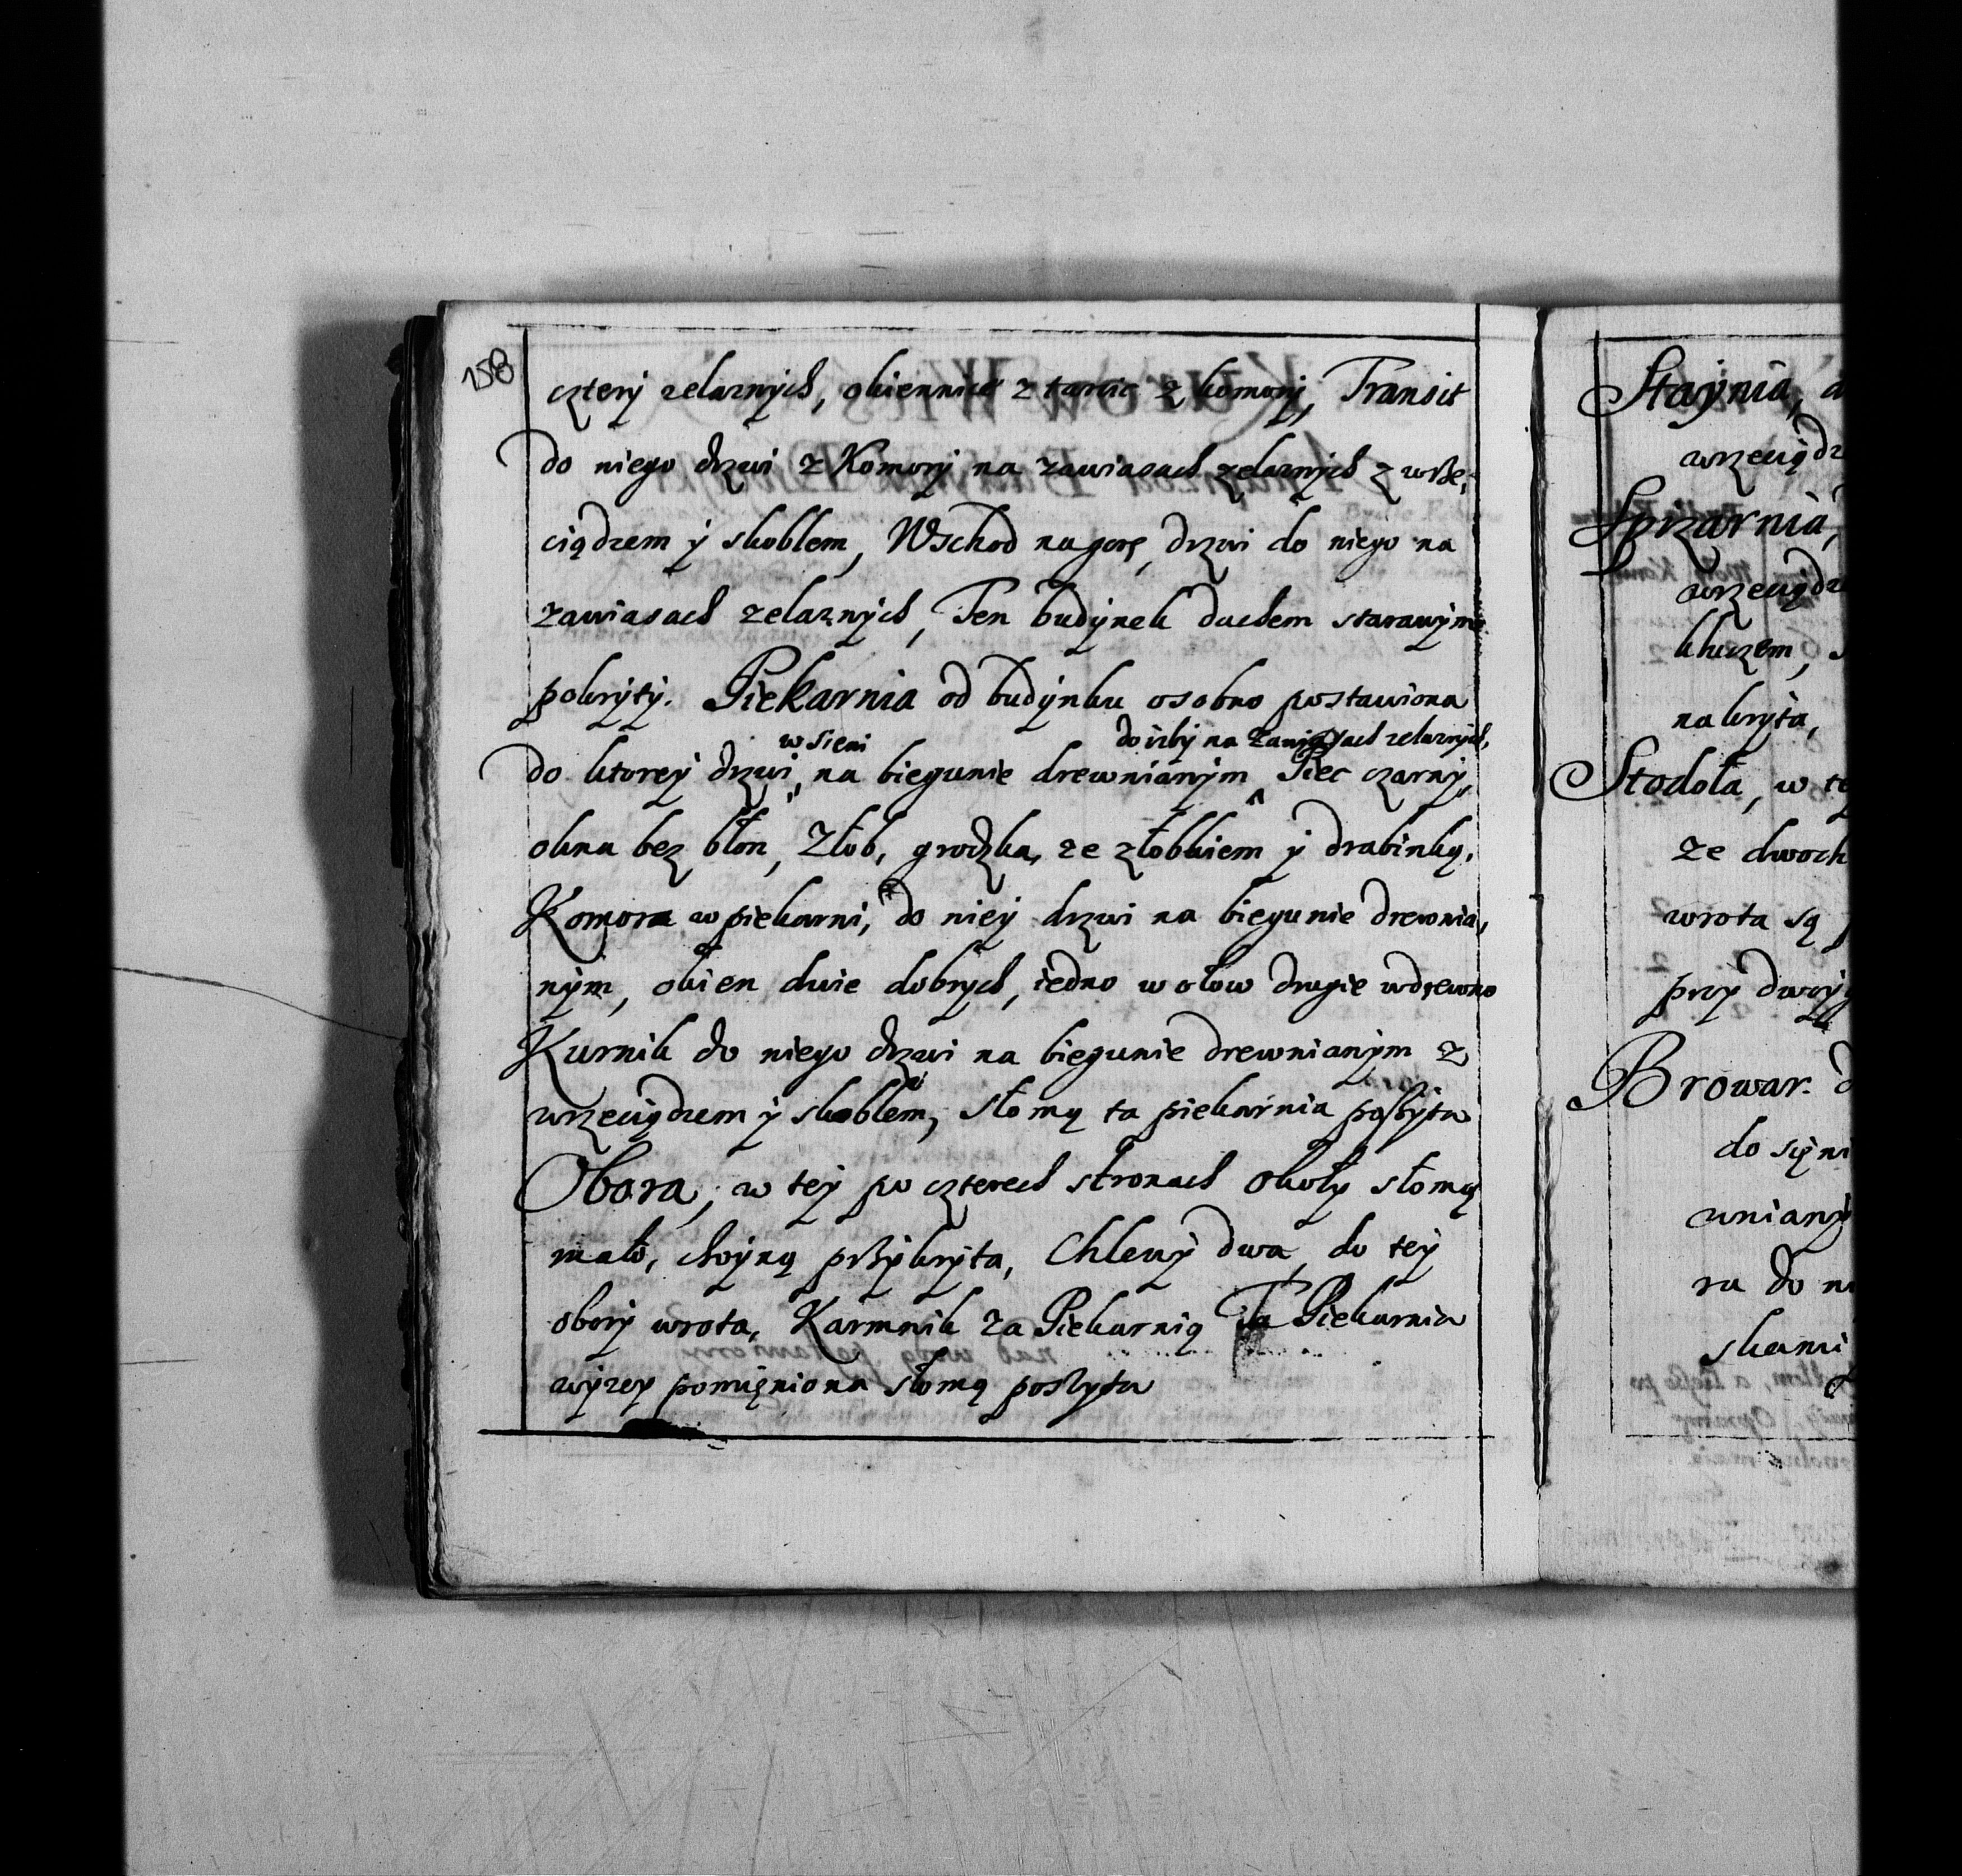 158
cztery zelaznych, okiennice z tarcic z komory, Transit
do niego drzwi z Komory na zawiasach zelaznych z wrze,
ciądzem y skoblem, Wschod na gorę, drzwi do niego na
zawiasach zelaznych, Ten budynek dachem starawym
pokryty. Piekarnia od budynku osobno postawiona
w sieni do izby na zawiasach zelaznych,
do ktorey drzwi, na biegunie drewnianym Piec czarny,
okna bez błon, Złob, grodzka, ze złobkiem y drabinką,
Komora w piekarni, do niey drzwi na biegunie drewnia,
nym, okien dwie dobrych, iedno w ołow drugie w drewno
Kurnik do niego drzwi na biegunie drewnianym z
wrzeciądzem y skoblem, słomą ta piekarnia poszyta
Obora, w tey po czterech stronach okoły słomą
mało, choyną przykryta, Chlewy dwa, do tey
obory wrota, Karmnik za Piekarnią Ta Piekarnia
wyzey pomięniona słomą poszyta
Staynia,
wrzeciądz
Spizarnia,
wrzeciądz
kluczem,
nakryta,
Stodoła, w te
ze dwoch
wrota są
przy dwoy
Browar. d
do sięni
wniany
ra do n
skami